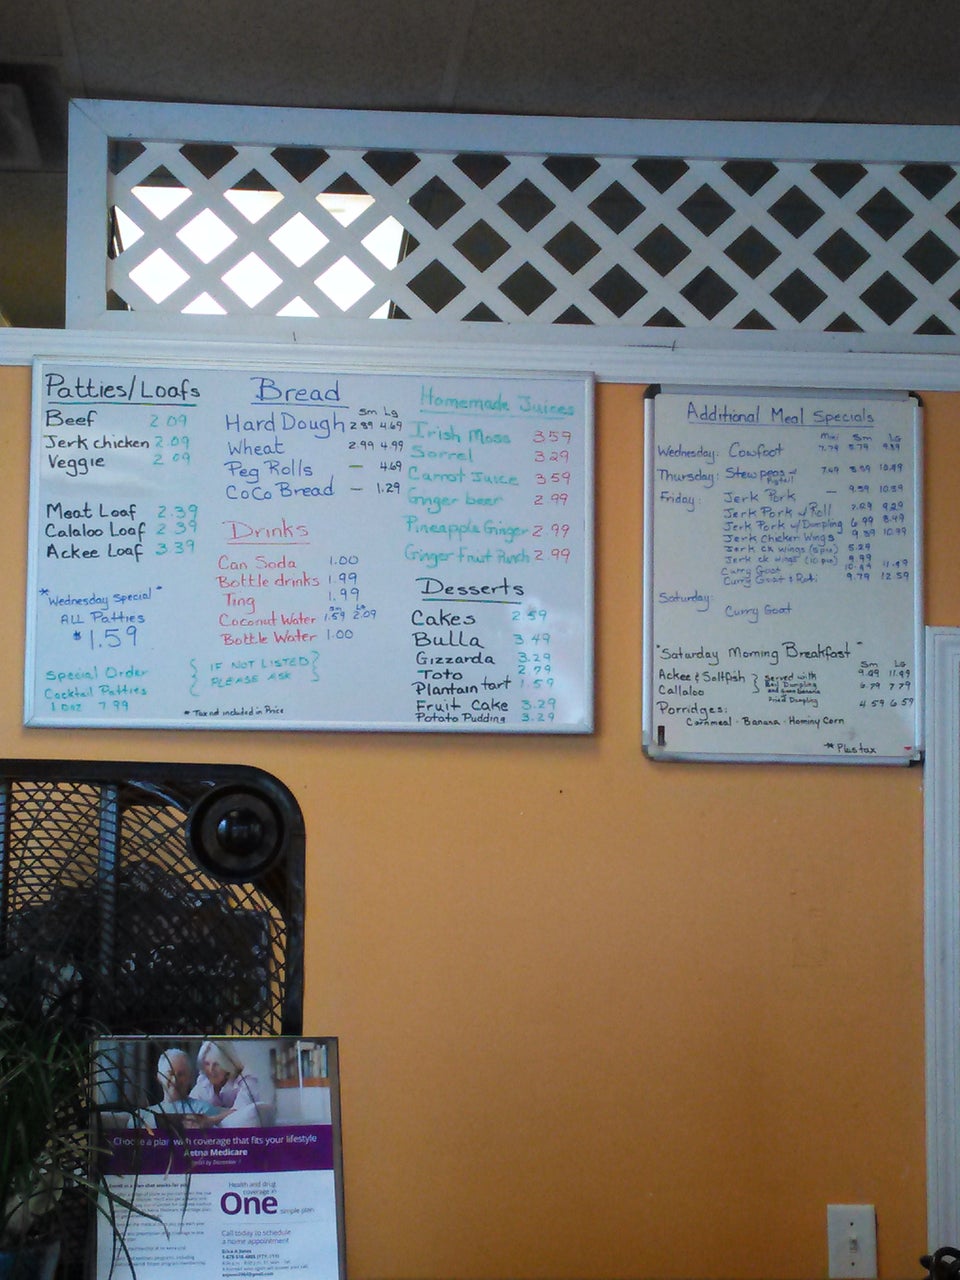 Patties/Loafs
Beef 2.09
Jerk chicken 2.09
Veggie 2.09
Meat Loaf 2.39
Calaloo Loaf 2.39
Ackee Loaf 3.39
*"Wednesday Special"
ALL Patties
$1.59
Special Order
Cocktail Patties
1 doz 7.99
Bread
Sm Lg
Hard Dough 2.89 4.69
Wheat 2.99 4.99
Peg Rolls — 4.69
CoCo Bread — 1.29
Drinks
Can Soda 1.00
Bottle drinks 1.99
Ting 1.99
Sm Lg
Coconut Water 1.59 2.09
Bottle Water 1.00
{IF NOT LISTED}
{PLEASE ASK}
* Tax not included in Price
Homemade Juices
Irish Moss 3.59
Sorrel 3.29
Carrot Juice 3.59
Ginger beer 2.99
Pineapple Ginger 2.99
Ginger Fruit Punch 2.99
Desserts
Cakes 2.59
Bulla 3.49
Gizzarda 3.29
Toto 2.79
Plantain tart 1.59
Fruit Cake 3.29
Potato Pudding 3.29
Additional Meal Specials
Mini Sm Lg
Wednesday: Cowfoot 7.79 8.79 9.89
Thursday: Stew peas w/ Pigtail 7.49 8.59 10.49
Friday: Jerk Pork — 9.59 10.59
Jerk Pork w/ Roll
Jerk Pork w/ Dumpling 6.99 8.49
Jerk Chicken Wings 9.59 10.99
Jerk ck wings (5 pc) 5.29
Jerk ck wings (10 pc) 9.99
Curry Goat
Curry Goat & Roti 9.79 12.59
Saturday:
Curry Goat
"Saturday Morning Breakfast"
Sm Lg
Ackee & Saltfish 9.49 11.49
Callaloo 6.79 7.79
} Served with
Boil Dumpling
and Green Banana
Fried Dumpling
Porridges: 4.59 6.59
Cornmeal - Banana - Hominy Corn
** Plus tax
Choose a plan with coverage that fits your lifestyle
Aetna Medicare
Health and drug
coverage in
One simple plan
Call today to schedule
a home appointment